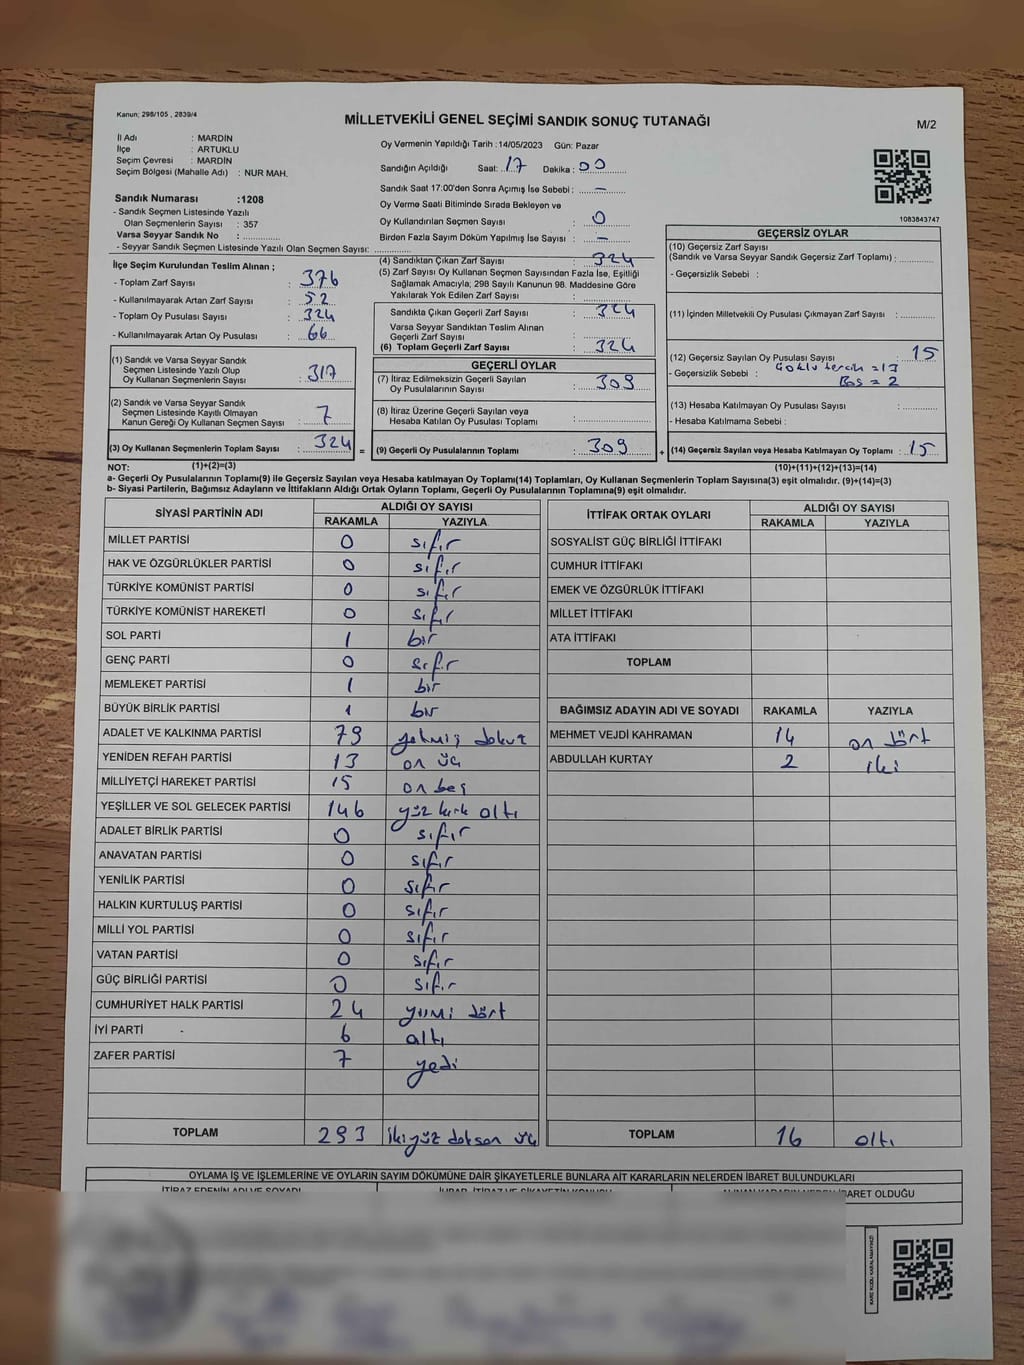 Kanun: 298/105 , 2839/4
MİLLETVEKİLİ GENEL SEÇİMİ SANDIK SONUÇ TUTANAĞI
M/2
İl Adı : MARDİN
İlçe : ARTUKLU
Seçim Çevresi : MARDİN
Seçim Bölgesi (Mahalle Adı) : NUR MAH.
Oy Vermenin Yapıldığı Tarih :14/05/2023 Gün: Pazar
Sandığın Açıldığı Saat: 17 Dakika : 00
Sandık Saat 17:00'den Sonra Açımış İse Sebebi : –
Oy Verme Saati Bitiminde Sırada Bekleyen ve
Oy Kullandırılan Seçmen Sayısı : 0
Birden Fazla Sayım Döküm Yapılmış İse Sayısı : –
1083843747
Sandık Numarası :1208
- Sandık Seçmen Listesinde Yazılı
Olan Seçmenlerin Sayısı : 357
Varsa Seyyar Sandık No :
- Seyyar Sandık Seçmen Listesinde Yazılı Olan Seçmen Sayısı:
İlçe Seçim Kurulundan Teslim Alınan ;
- Toplam Zarf Sayısı : 376
- Kullanılmayarak Artan Zarf Sayısı : 52
- Toplam Oy Pusulası Sayısı : 324
- Kullanılmayarak Artan Oy Pusulası : 66
(1) Sandık ve Varsa Seyyar Sandık
Seçmen Listesinde Yazılı Olup
Oy Kullanan Seçmenlerin Sayısı : 317
(2) Sandık ve Varsa Seyyar Sandık
Seçmen Listesinde Kayıtlı Olmayan
Kanun Gereği Oy Kullanan Seçmen Sayısı : 7
(3) Oy Kullanan Seçmenlerin Toplam Sayısı : 324 =
(4) Sandıktan Çıkan Zarf Sayısı : 324
(5) Zarf Sayısı Oy Kullanan Seçmen Sayısından Fazla İse, Eşitliği
Sağlamak Amacıyla; 298 Sayılı Kanunun 98. Maddesine Göre
Yakılarak Yok Edilen Zarf Sayısı :
Sandıkta Çıkan Geçerli Zarf Sayısı : 324
Varsa Seyyar Sandıktan Teslim Alınan
Geçerli Zarf Sayısı :
(6) Toplam Geçerli Zarf Sayısı : 324
GEÇERLİ OYLAR
(7) İtiraz Edilmeksizin Geçerli Sayılan
Oy Pusulalarının Sayısı : 309
(8) İtiraz Üzerine Geçerli Sayılan veya
Hesaba Katılan Oy Pusulası Toplamı :
(9) Geçerli Oy Pusulalarının Toplamı : 309 +
GEÇERSİZ OYLAR
(10) Geçersiz Zarf Sayısı
(Sandık ve Varsa Seyyar Sandık Geçersiz Zarf Toplamı) :
- Geçersizlik Sebebi :
(11) İçinden Milletvekili Oy Pusulası Çıkmayan Zarf Sayısı :
(12) Geçersiz Sayılan Oy Pusulası Sayısı : 15
- Geçersizlik Sebebi : Çoklu tercih = 13
Boş = 2
(13) Hesaba Katılmayan Oy Pusulası Sayısı :
- Hesaba Katılmama Sebebi :
(14) Geçersiz Sayılan veya Hesaba Katılmayan Oy Toplamı : 15
NOT: (1)+(2)=(3)
(10)+(11)+(12)+(13)=(14)
a- Geçerli Oy Pusulalarının Toplamı(9) ile Geçersiz Sayılan veya Hesaba katılmayan Oy Toplamı(14) Toplamları, Oy Kullanan Seçmenlerin Toplam Sayısına(3) eşit olmalıdır. (9)+(14)=(3)
b- Siyasi Partilerin, Bağımsız Adayların ve İttifakların Aldığı Ortak Oyların Toplamı, Geçerli Oy Pusulalarının Toplamına(9) eşit olmalıdır.
SİYASİ PARTİNİN ADI ALDIĞI OY SAYISI
RAKAMLA YAZIYLA
MİLLET PARTİSİ 0 sıfır
HAK VE ÖZGÜRLÜKLER PARTİSİ 0 sıfır
TÜRKİYE KOMÜNİST PARTİSİ 0 sıfır
TÜRKİYE KOMÜNİST HAREKETİ 0 sıfır
SOL PARTİ 1 bir
GENÇ PARTİ 0 sıfır
MEMLEKET PARTİSİ 1 bir
BÜYÜK BİRLİK PARTİSİ 1 bir
ADALET VE KALKINMA PARTİSİ 79 yetmiş dokuz
YENİDEN REFAH PARTİSİ 13 on üç
MİLLİYETÇİ HAREKET PARTİSİ 15 on beş
YEŞİLLER VE SOL GELECEK PARTİSİ 146 yüz kırk altı
ADALET BİRLİK PARTİSİ 0 sıfır
ANAVATAN PARTİSİ 0 sıfır
YENİLİK PARTİSİ 0 sıfır
HALKIN KURTULUŞ PARTİSİ 0 sıfır
MİLLİ YOL PARTİSİ 0 sıfır
VATAN PARTİSİ 0 sıfır
GÜÇ BİRLİĞİ PARTİSİ 0 sıfır
CUMHURİYET HALK PARTİSİ 24 yirmi dört
İYİ PARTİ 6 altı
ZAFER PARTİSİ 7 yedi
TOPLAM 293 ikiyüz doksan üç
İTTİFAK ORTAK OYLARI ALDIĞI OY SAYISI
RAKAMLA YAZIYLA
SOSYALİST GÜÇ BİRLİĞİ İTTİFAKI
CUMHUR İTTİFAKI
EMEK VE ÖZGÜRLÜK İTTİFAKI
MİLLET İTTİFAKI
ATA İTTİFAKI
TOPLAM
BAĞIMSIZ ADAYIN ADI VE SOYADI RAKAMLA YAZIYLA
MEHMET VEJDİ KAHRAMAN 14 on dört
ABDULLAH KURTAY 2 iki
TOPLAM 16 altı
OYLAMA İŞ VE İŞLEMLERİNE VE OYLARIN SAYIM DÖKÜMÜNE DAİR ŞİKAYETLERLE BUNLARA AİT KARARLARIN NELERDEN İBARET BULUNDUKLARI
İTİRAZ EDENİN ADI VE SOYADI